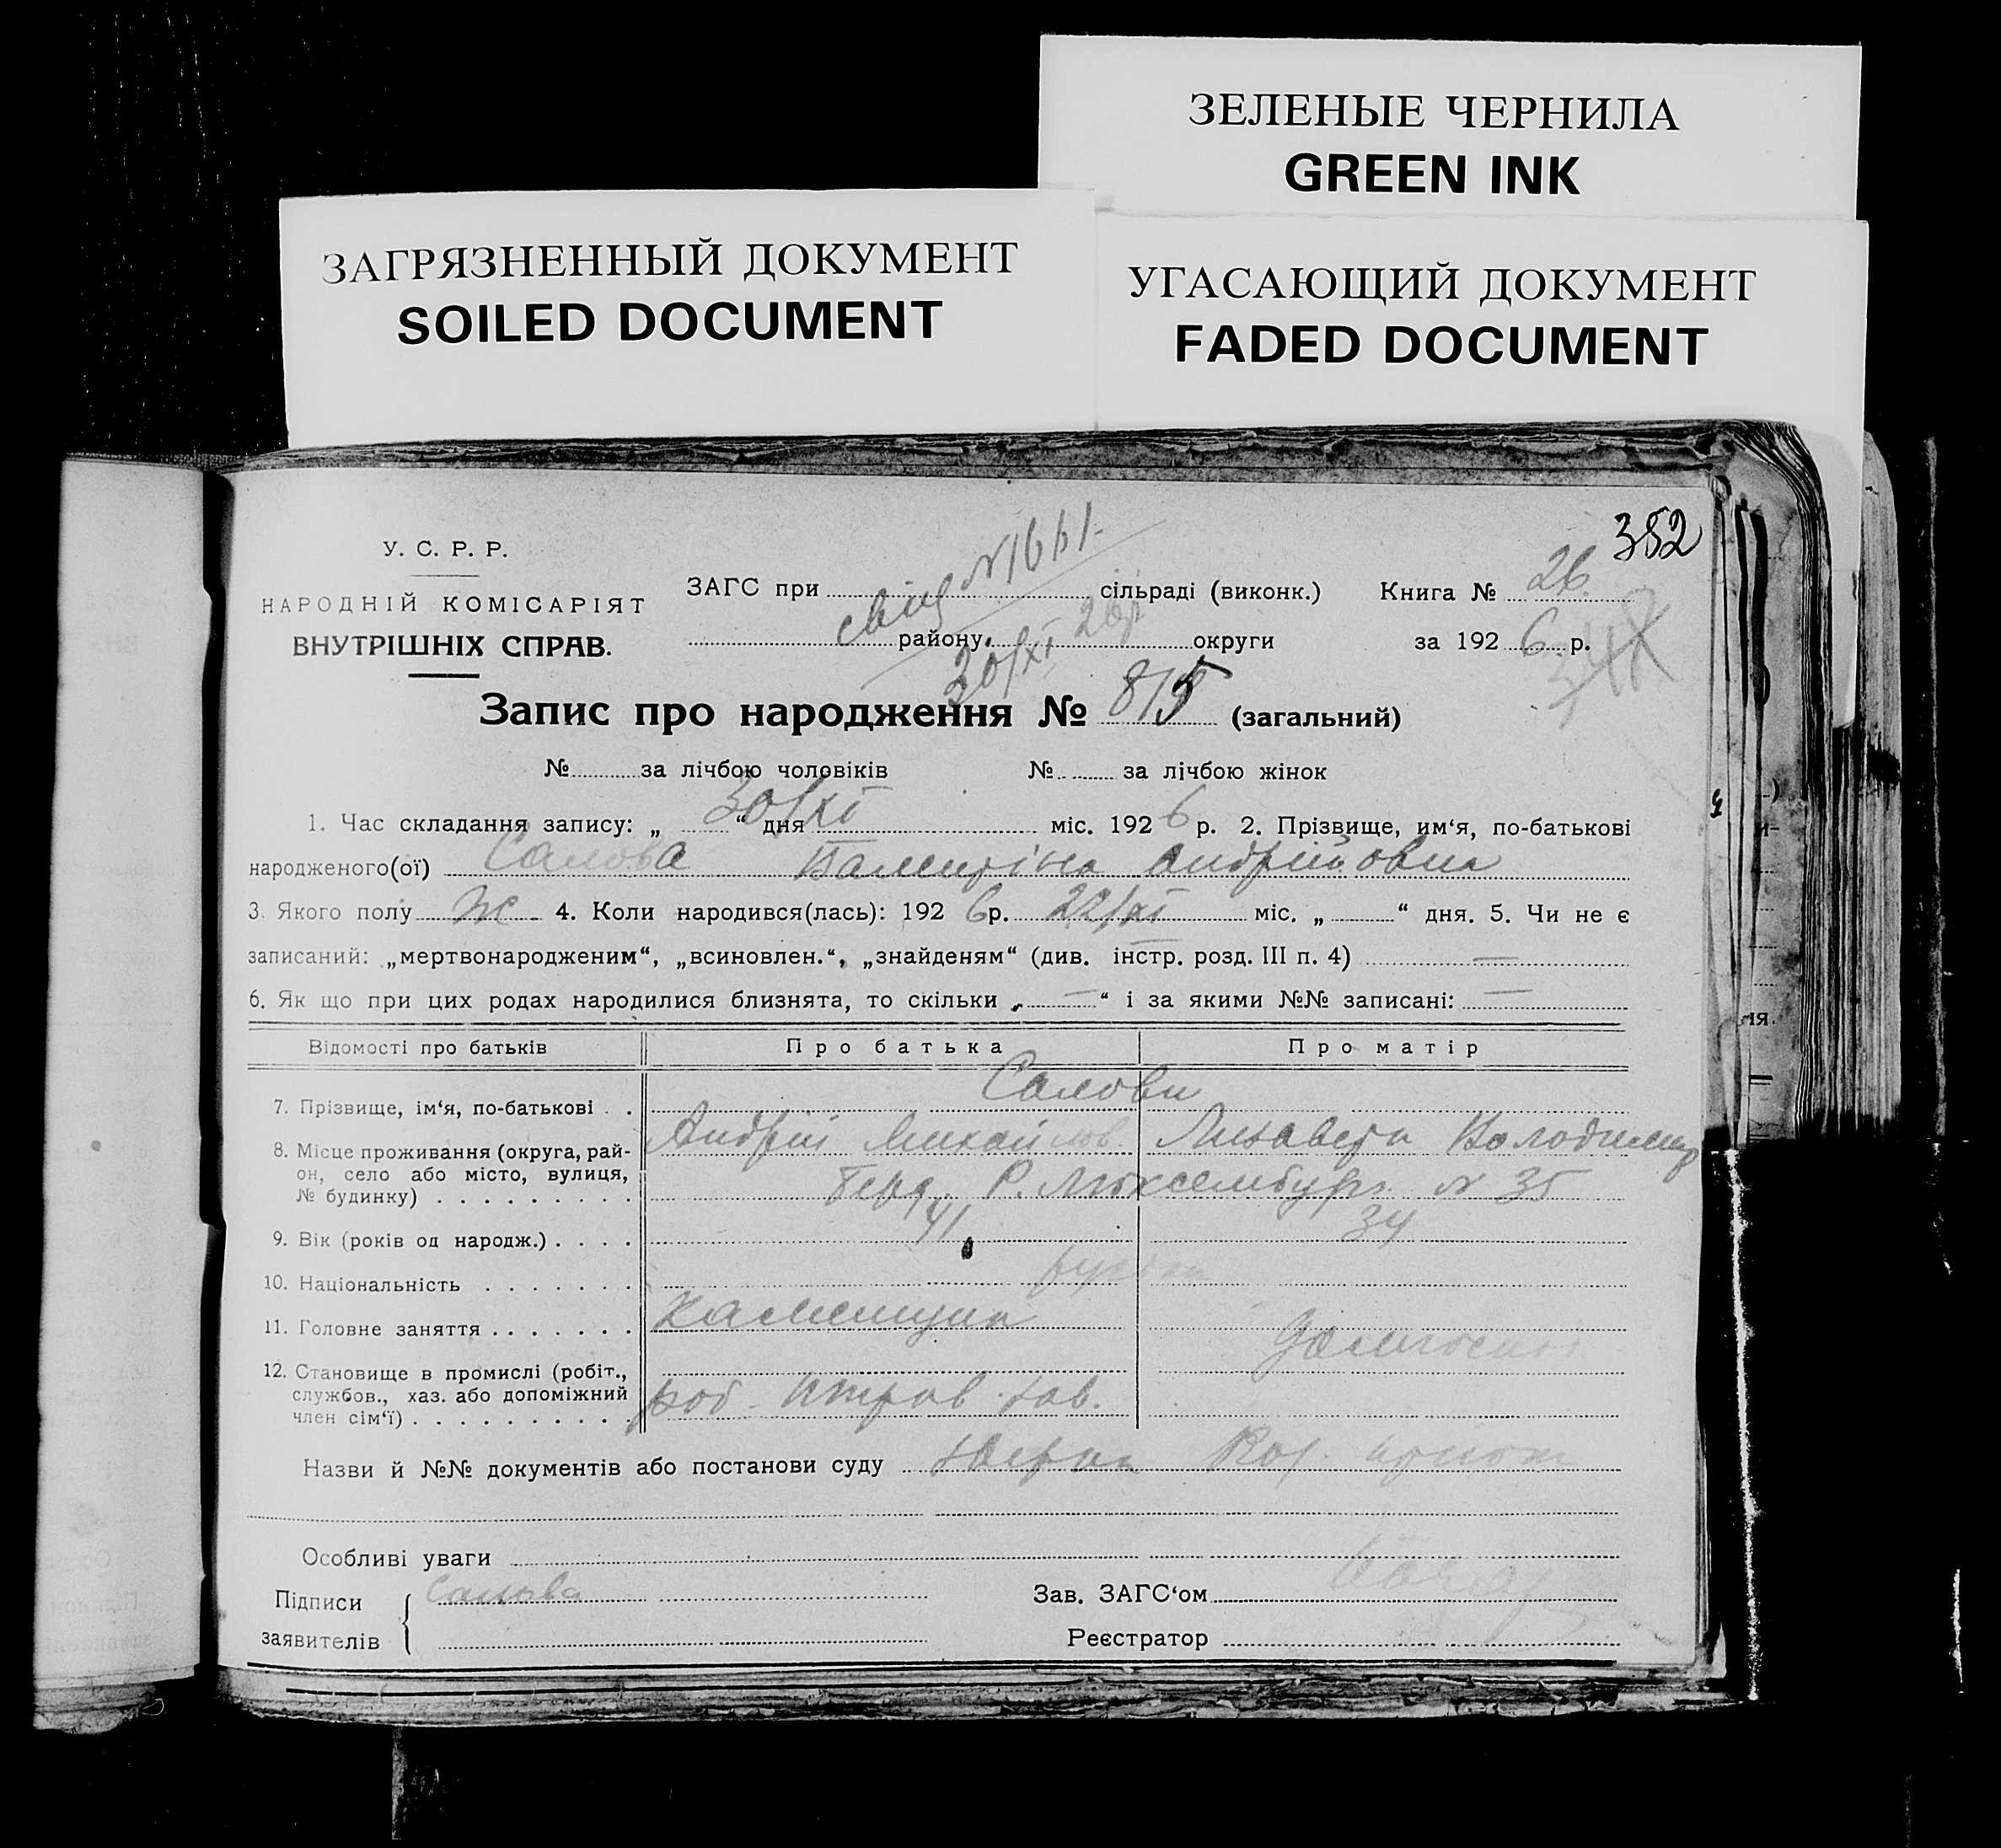 ЗЕЛЕНЫЕ ЧЕРНИЛА
GREEN INK
ЗАГРЯЗНЕННЫЙ ДОКУМЕНТ
SOILED DOCUMENT
УГАСАЮЩИЙ ДОКУМЕНТ
FADED DOCUMENT
352
У. С. Р. Р.
НАРОДНІЙ КОМІСАРІЯТ
ВНУТРІШНІХ СПРАВ.
ЗАГС при сільраді (виконк.) Книга № 26.
району, округи за 1926 р.
свід N1661.
30/XI 26р
Запис про народження № 815 (загальний)
№ за лічбою чоловіків № за лічбою жінок
1. Час складання запису: „ 30/XI “ дня міс. 1926 р. 2. Прізвище, им‘я, по-батькові
народженого(ої) Салова Валентіна Андрійовна
3. Якого полу Ж 4. Коли народився(лась): 1926р. 22/XI міс. „ “ дня. 5. Чи не є
записаний: „мертвонародженим“, „всиновлен.“, „знайденям“ (див. інстр. розд. III п. 4) —
6. Як що при цих родах народилися близнята, то скільки „ — “ і за якими №№ записані: —
Відомості про батьків Про батька Про матір
7. Прізвище, ім‘я, по-батькові . . Салови
Андрій Михайлов. Лизавета Володимир
8. Місце проживання (округа, рай-
он, село або місто, вулиця,
№ будинку) . . . . . . . . . Р. Люксембург. N 35
9. Вік (років од народж.) . . . . 41 34
10. Національність . . . . . . .
11. Головне заняття . . . . . . . Каменщик Домгосп
12. Становище в промислі (робіт.,
службов., хаз. або допоміжний
член сім‘ї) . . . . . . . . . . роб
Назви й №№ документів або постанови суду
Особливі уваги
Підписи Салова Зав. ЗАГС‘ом
заявителів Реєстратор